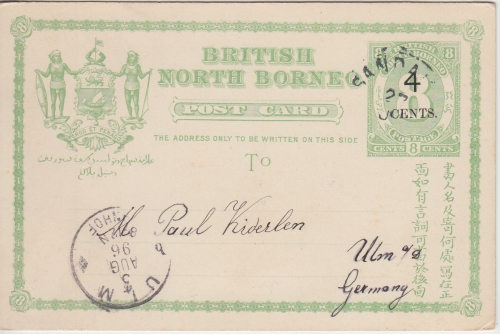 BRITISH
NORTH BORNEO
POST CARD
THE ADDRESS ONLY TO BE WRITTEN ON THIS SIDE
To
8
4
CENTS.
POSTAGE
CENTS 8 CENTS
SANDAK
Paul Kiderlen
Ulm a/D
Germany
ULM
3
AUG
96
BAHNHOF
書人名及寄何處寫在正
面如有言詞可寫於後面